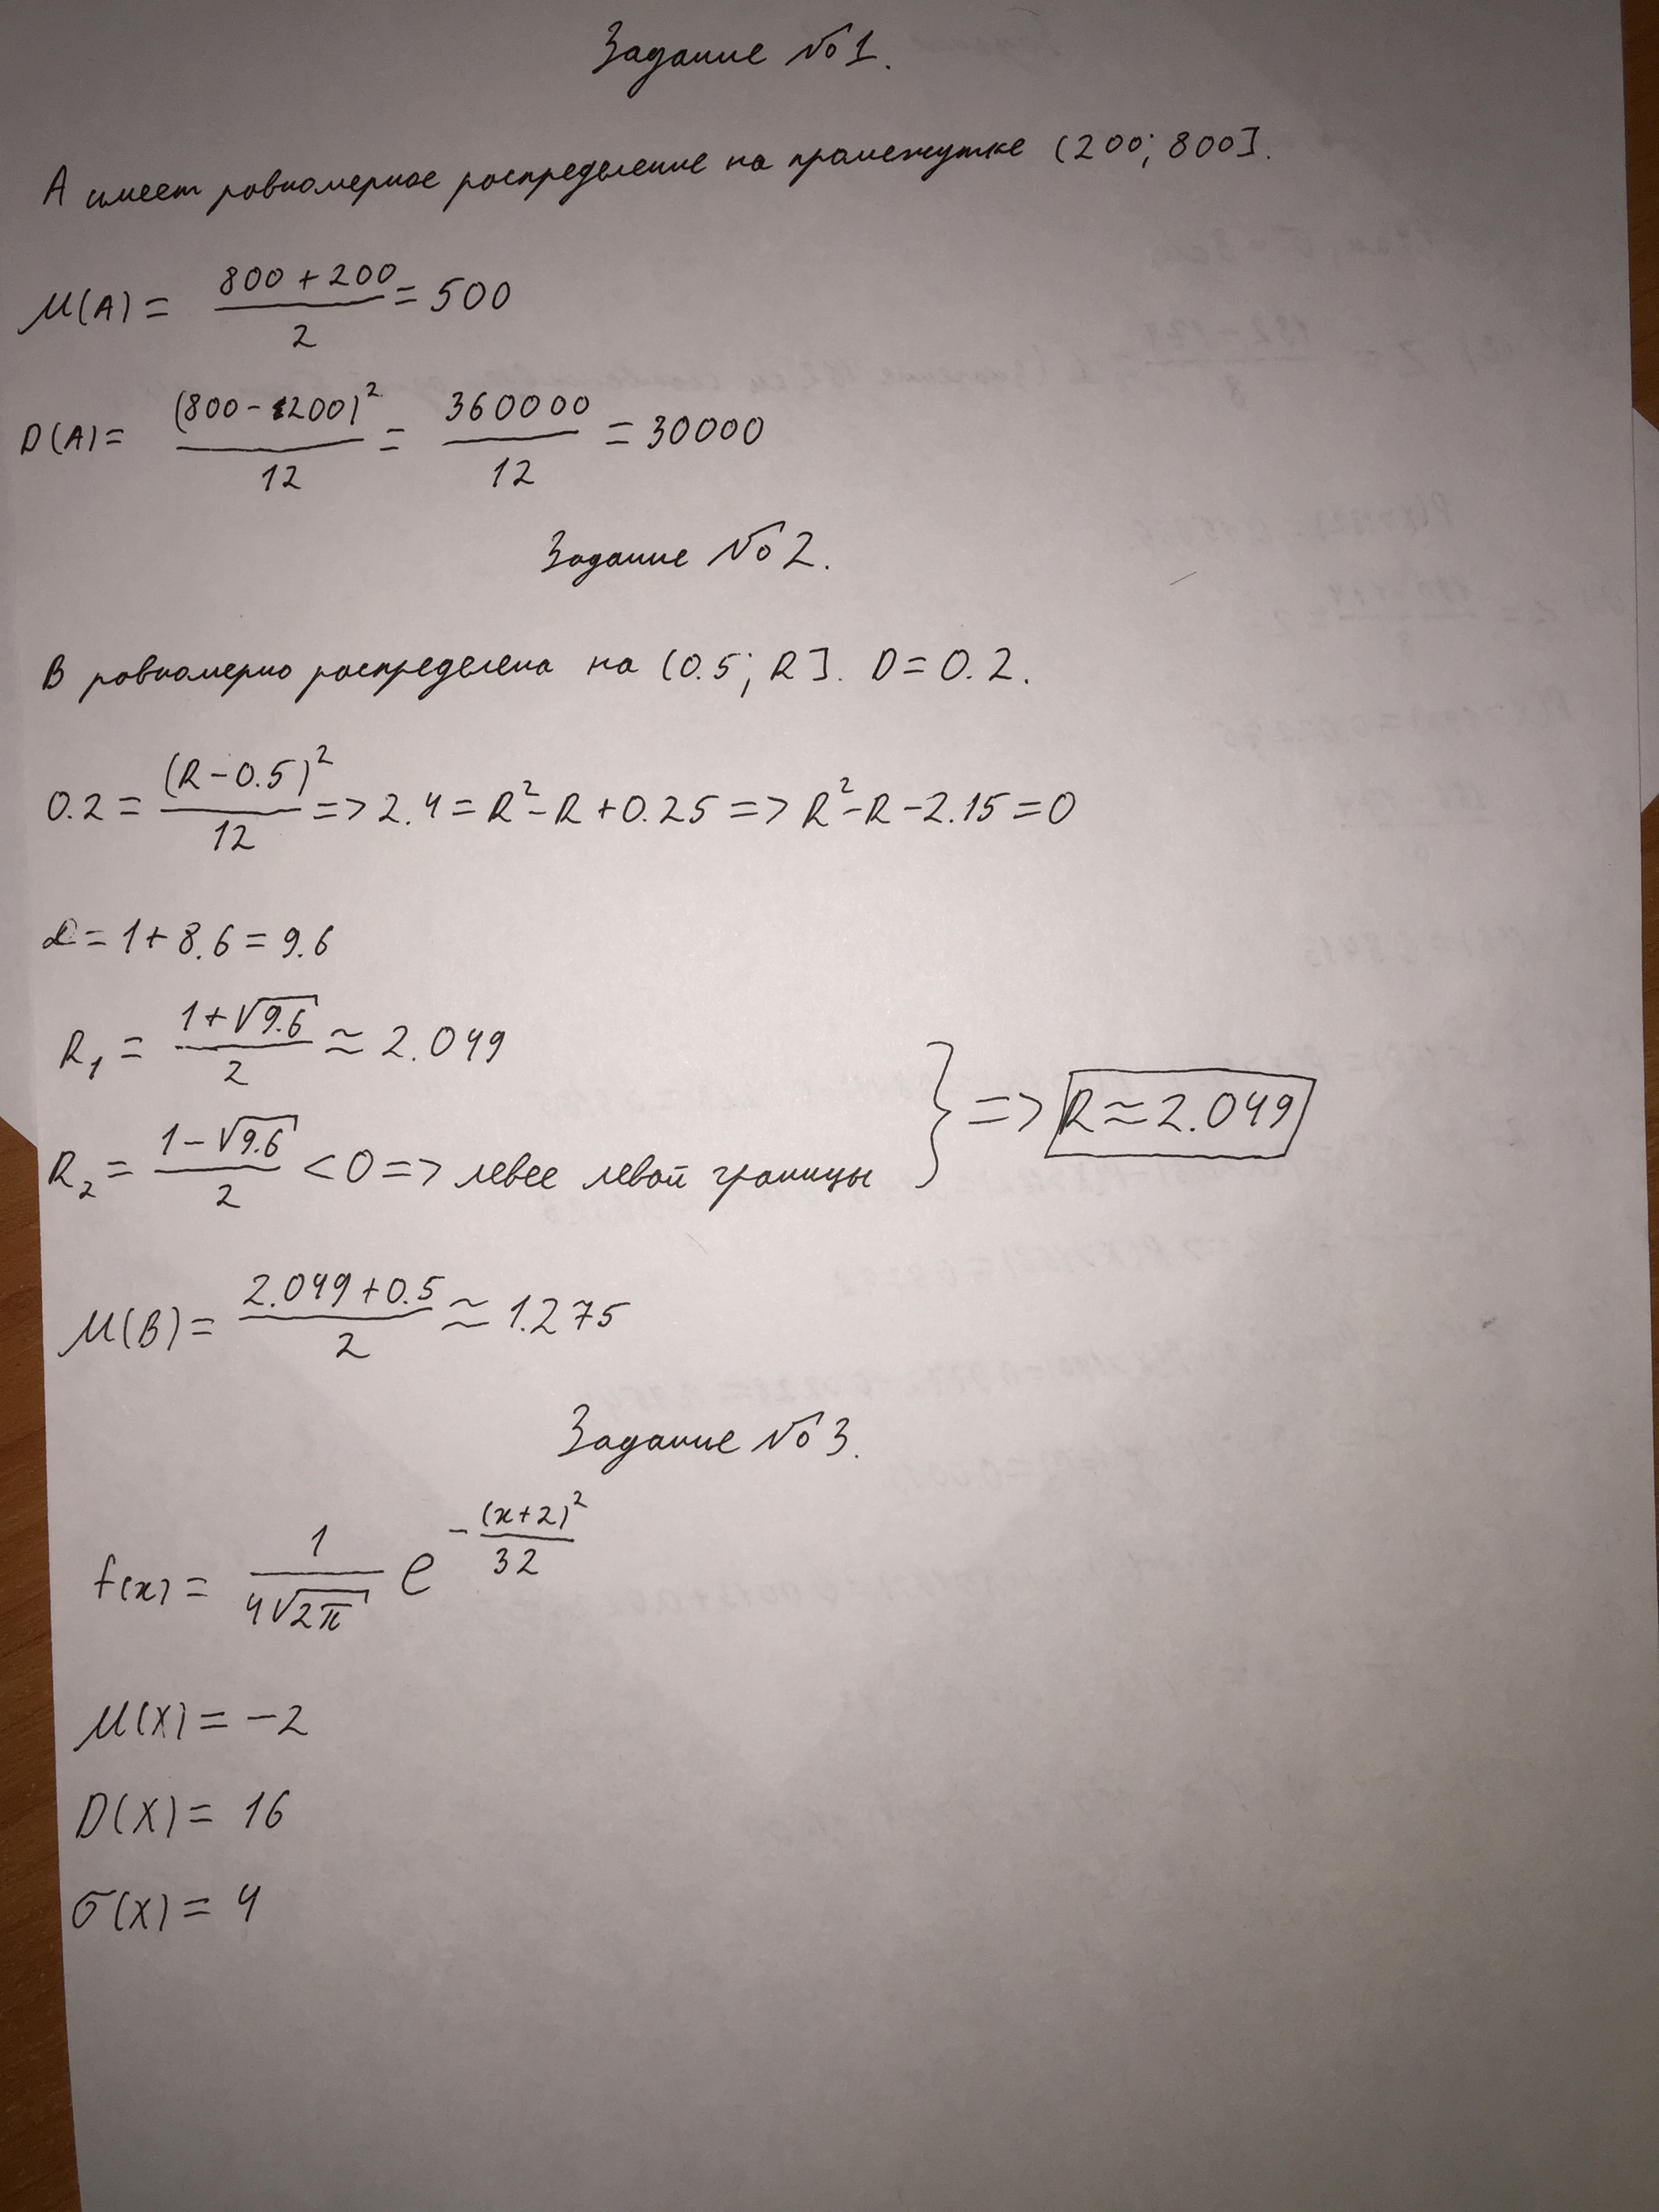 Задание №1.
А имеет равномерное распределение на промежутке (200; 800].
M(A) = (800 + 200)/2 = 500
D(A) = (800 - 200)²/12 = 360000/12 = 30000
Задание №2.
В равномерно распределена на (0.5; R]. D = 0.2.
0.2 = (R - 0.5)²/12 => 2.4 = R² - R + 0.25 => R² - R - 2.15 = 0
d = 1 + 8.6 = 9.6
R₁ = (1 + √9.6)/2 ≈ 2.049
R₂ = (1 - √9.6)/2 < 0 => левее левой границы } => R ≈ 2.049
M(B) = (2.049 + 0.5)/2 ≈ 1.275
Задание №3.
f(x) = 1/(4√2π) e^(-(x+2)²/32)
M(X) = -2
D(X) = 16
σ(X) = 4